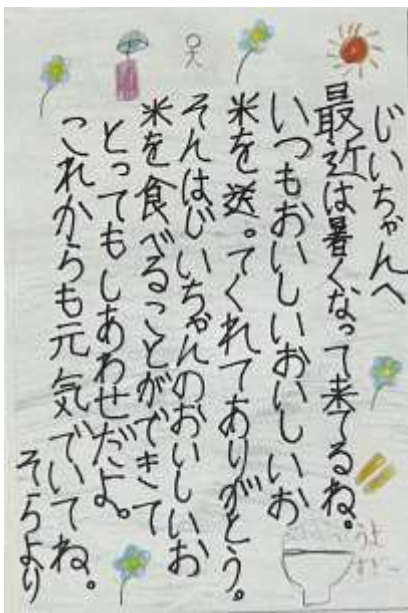 じいちゃんへ
最近は暑くなって来てるね。
いつもおいしいおいしいお
米を送。てくれてありがとう。
そんはじいちゃんのおいしいお
米を食べることができて
とってもしあわせだよ。
これからも元気でいてね。
そらより